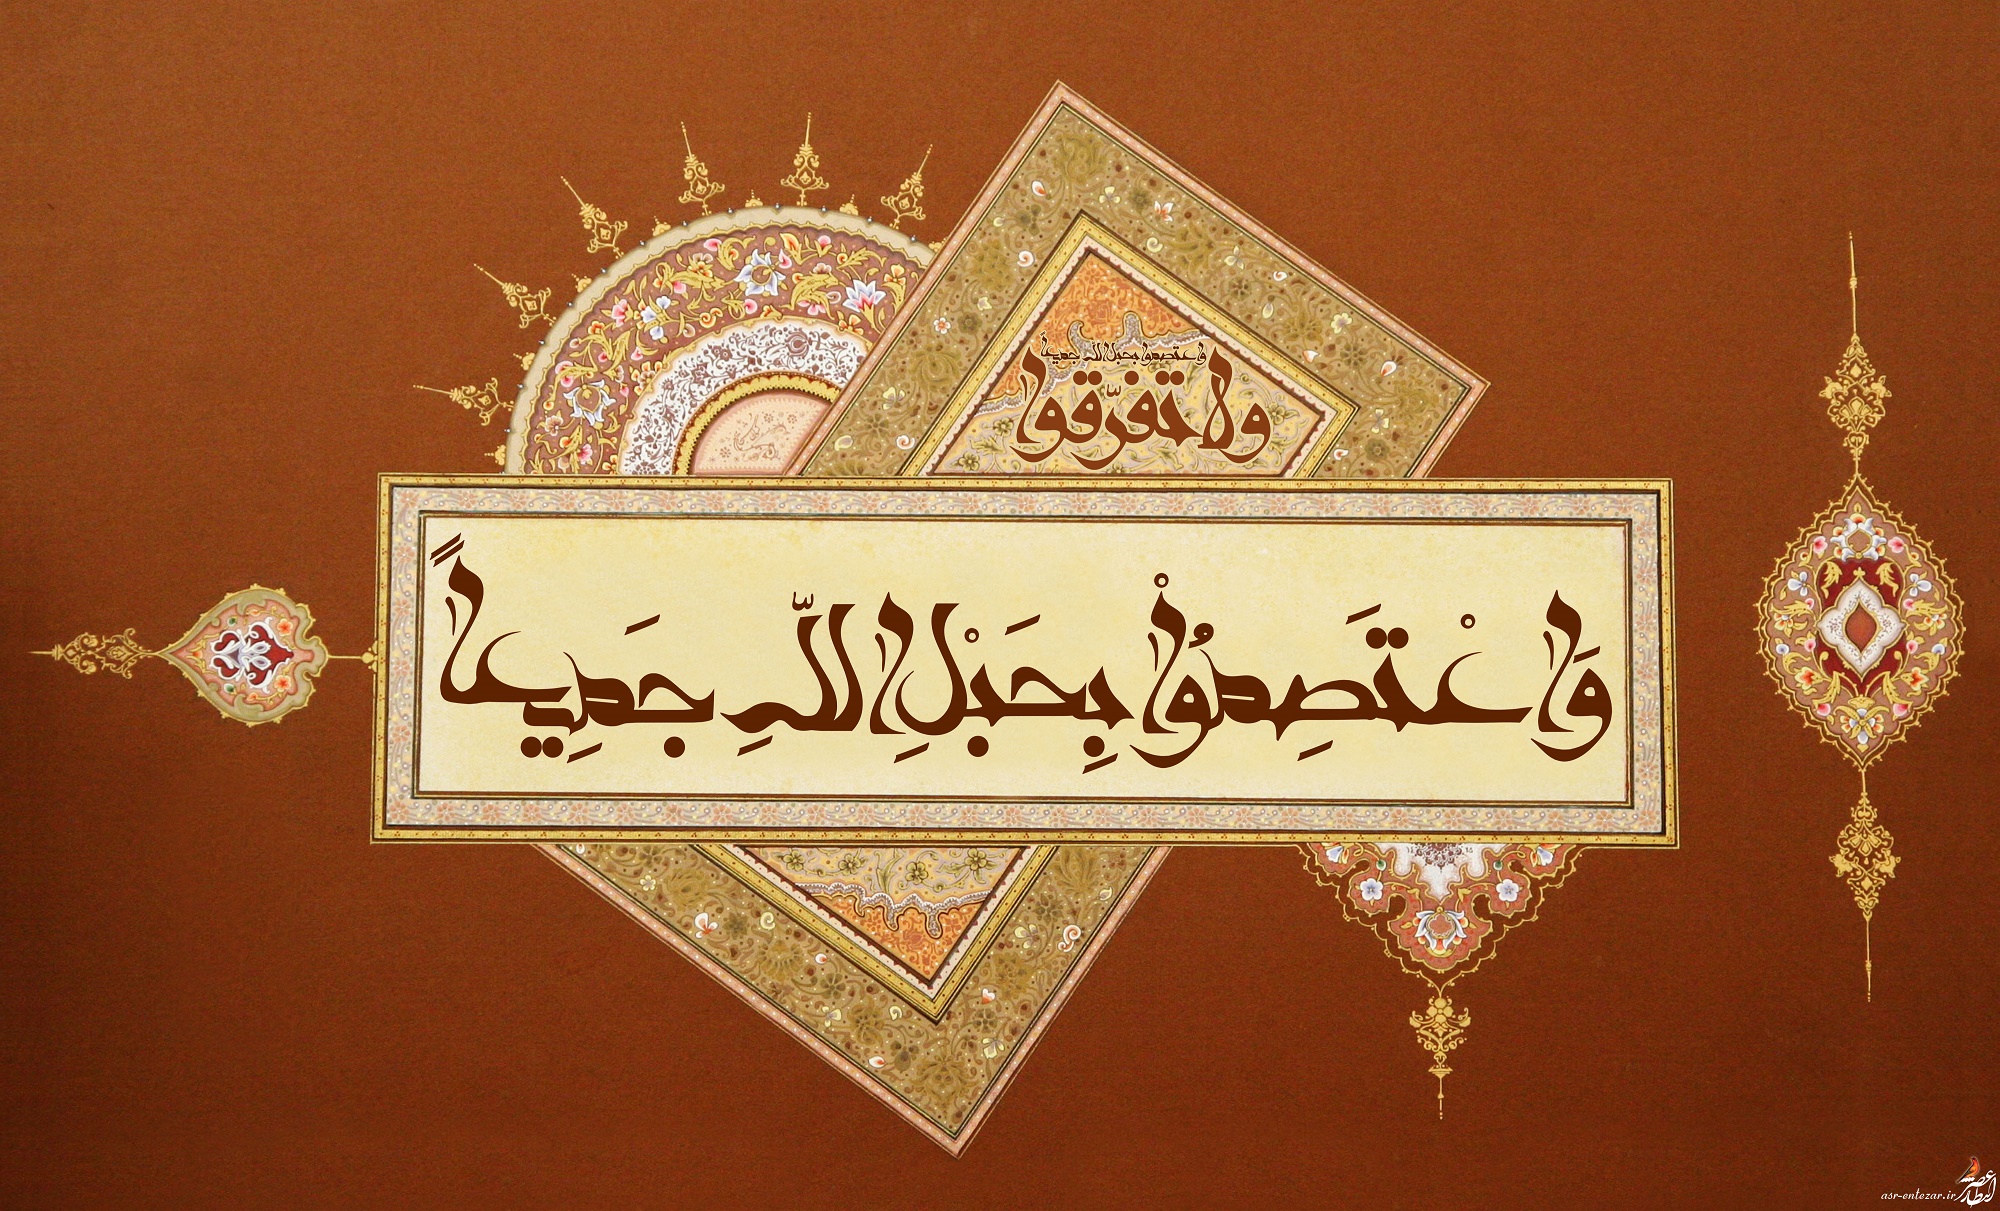 واعتصموا بحبل الله جمیعاً
ولا تفرّقوا
وَاعْتَصِمُواْ بِحَبْلِ اللّهِ جَمِيعاً
عصر انتظار
asr-entezar.ir